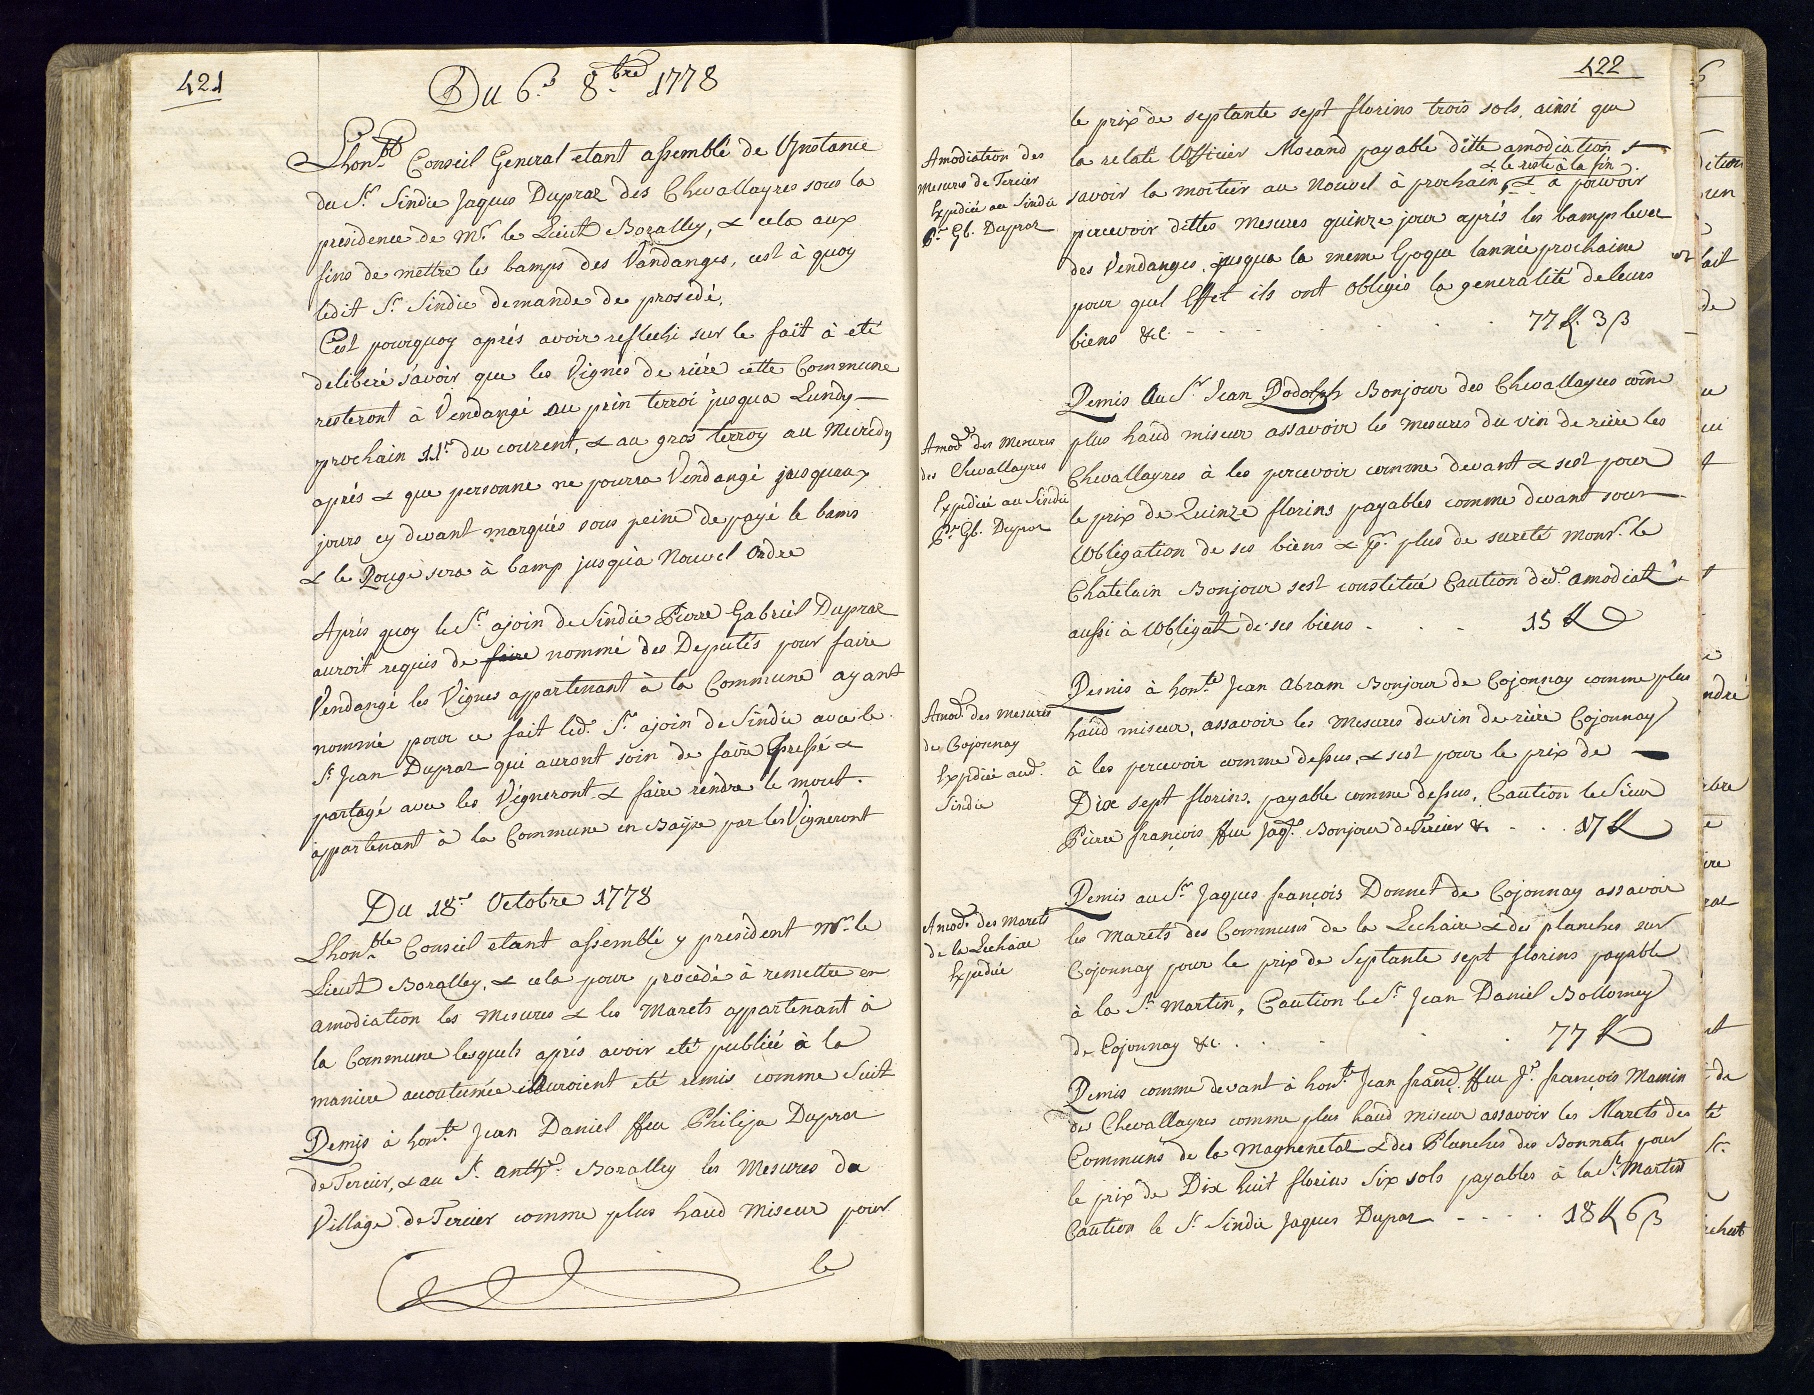 421
Du 6.e 8.bre 1778
Lhon.ble Conseil General etant assemblé de L'Instance
du S.r Sindic Jaques Dupraz des Chevallayres sous la
presidence de M.r le Lieut Boralley, & cela aux
fins de mettre les bamps des Vandanges, cest à quoy
ledit S.r Sindic demande de prosedé.
Cest pourquoy aprés avoir reflechi sur le fait à eté
deliberé s'avoir que les Vignes de riére cette Commune
resteront à Vendangé au prin terroi jusqua Lundy
prochain 11.e du courent, & au gros terroy au Mecredy
aprés & que personne ne pourra Vendangé jusquaux
jours cy devant marqués sous peine de payé le bams
& le Rouge sera à bamp jusqu'à Nouvel Ordre
Aprés quoy le S.r ajoin de Sindic Pierre Gabriel Dupraz
auroit requis de faire nommé des Deputés pour faire
Vendangé les Vignes appartenant à la Commune ayant
nommé pour ce fait led. S.r ajoin de Sindic avec le
S.r Jean Dupraz qui auront soin de faire Pressé &
partagé avec les Vigneront & faire rendre le mout
appartenant à la Commune en Bayse par les Vigneront
Du 18.e Octobre 1778
Lhon.ble Conseil etant assemblé y president M.r le
Lieut Boralley, & cela pour procedé à remettre en
amodiation les Mesures & les Marets appartenant à
la Commune lesquels aprés avoir eté publiée à la
maniere acoutumée auroient eté remis comme Suit
Remis à hon.te Jean Daniel ffeu Philipe Dupraz
de Tercier, & au S.r anth.e Boralley les Mesures du
Village de Tercier comme plus haud Miseur pour
le
422
le prix de septante sept florins trois sols, ainsi que
la relate L'Officier Morand payable ditte amodiation
& le reste à la fin
savoir la moitier au Nouvel à prochain, & à pouvoir
percevoir dittes Mesures quinze jour aprés les bamps lever
des Vendanges, jusqua la meme Epoque lannée prochaine
pour quel Effet ils ont Obligés la generalité de leurs
biens &c. 77 fl. 3 ß
Amodiation des
Mesures de Tercier
Expediée au Sindic
P.re Gb. Dupraz
Remis Au S.r Jean Rodolph Bonjour des Chevallayres com̄e
plus haud miseur assavoir les mesures du vin de riére les
Chevallayres à les percevoir comme devant & sest pour
le prix de Quinze florins payables comme devant sous
Lobligation de ses biens & p.r plus de sureté Mons.r le
Chatelain Bonjour sest constitué Caution de d.e amodiat
aussi à Lobligat. de ses biens 15 fl
Amod.n des Mesures
des Chevallayres
Expediée au Sindic
P.re Gb. Dupraz
Remis à hon.te Jean Abram Bonjour de Cojonnay comme plus
haud miseur, assavoir les Mesures du vin de riére Cojonnay
à les percevoir comme dessus, & sest pour le prix de
Dix sept florins, payable comme dessus, Caution le Sieur
Pierre françois ffeu Jaq.s Bonjour de Tercier & 17 fl
Amod.n des mesures
de Cojonnay
Expediée aud.
Sindic
Remis au S.r Jaques françois Donnet de Cojonnay assavoir
les Marets des Communs de la Lechaire & des planches sur
Cojonnay pour le prix de Septante sept florins payable
à la S.t Martin, Caution le S.r Jean Daniel Bollomey
de Cojonnay &c. 77 fl
Amod.n des Marets
de la Lechaire
Expediée
Remis comme devant à hon.te Jean franç. ffeu J.n françois Mamin
de Chevallayres comme plus haud miseur assavoir les Marets des
Communs de la Magnenetaz & des Planches des Bonnats pour
le prix de Dix huit florins Six sols payables à la S.t Martin
Caution le S.r Sindic Jaques Dupraz 18 fl 6 ß